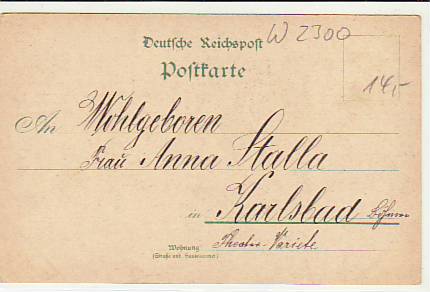 W 2300
Deutsche Reichspost
Postkarte
14,-
An Wohlgeboren
Frau Anna Stalla
in Karlsbad Böhmen
Theater-Variete
Wohnung
(Straße und Hausnummer)